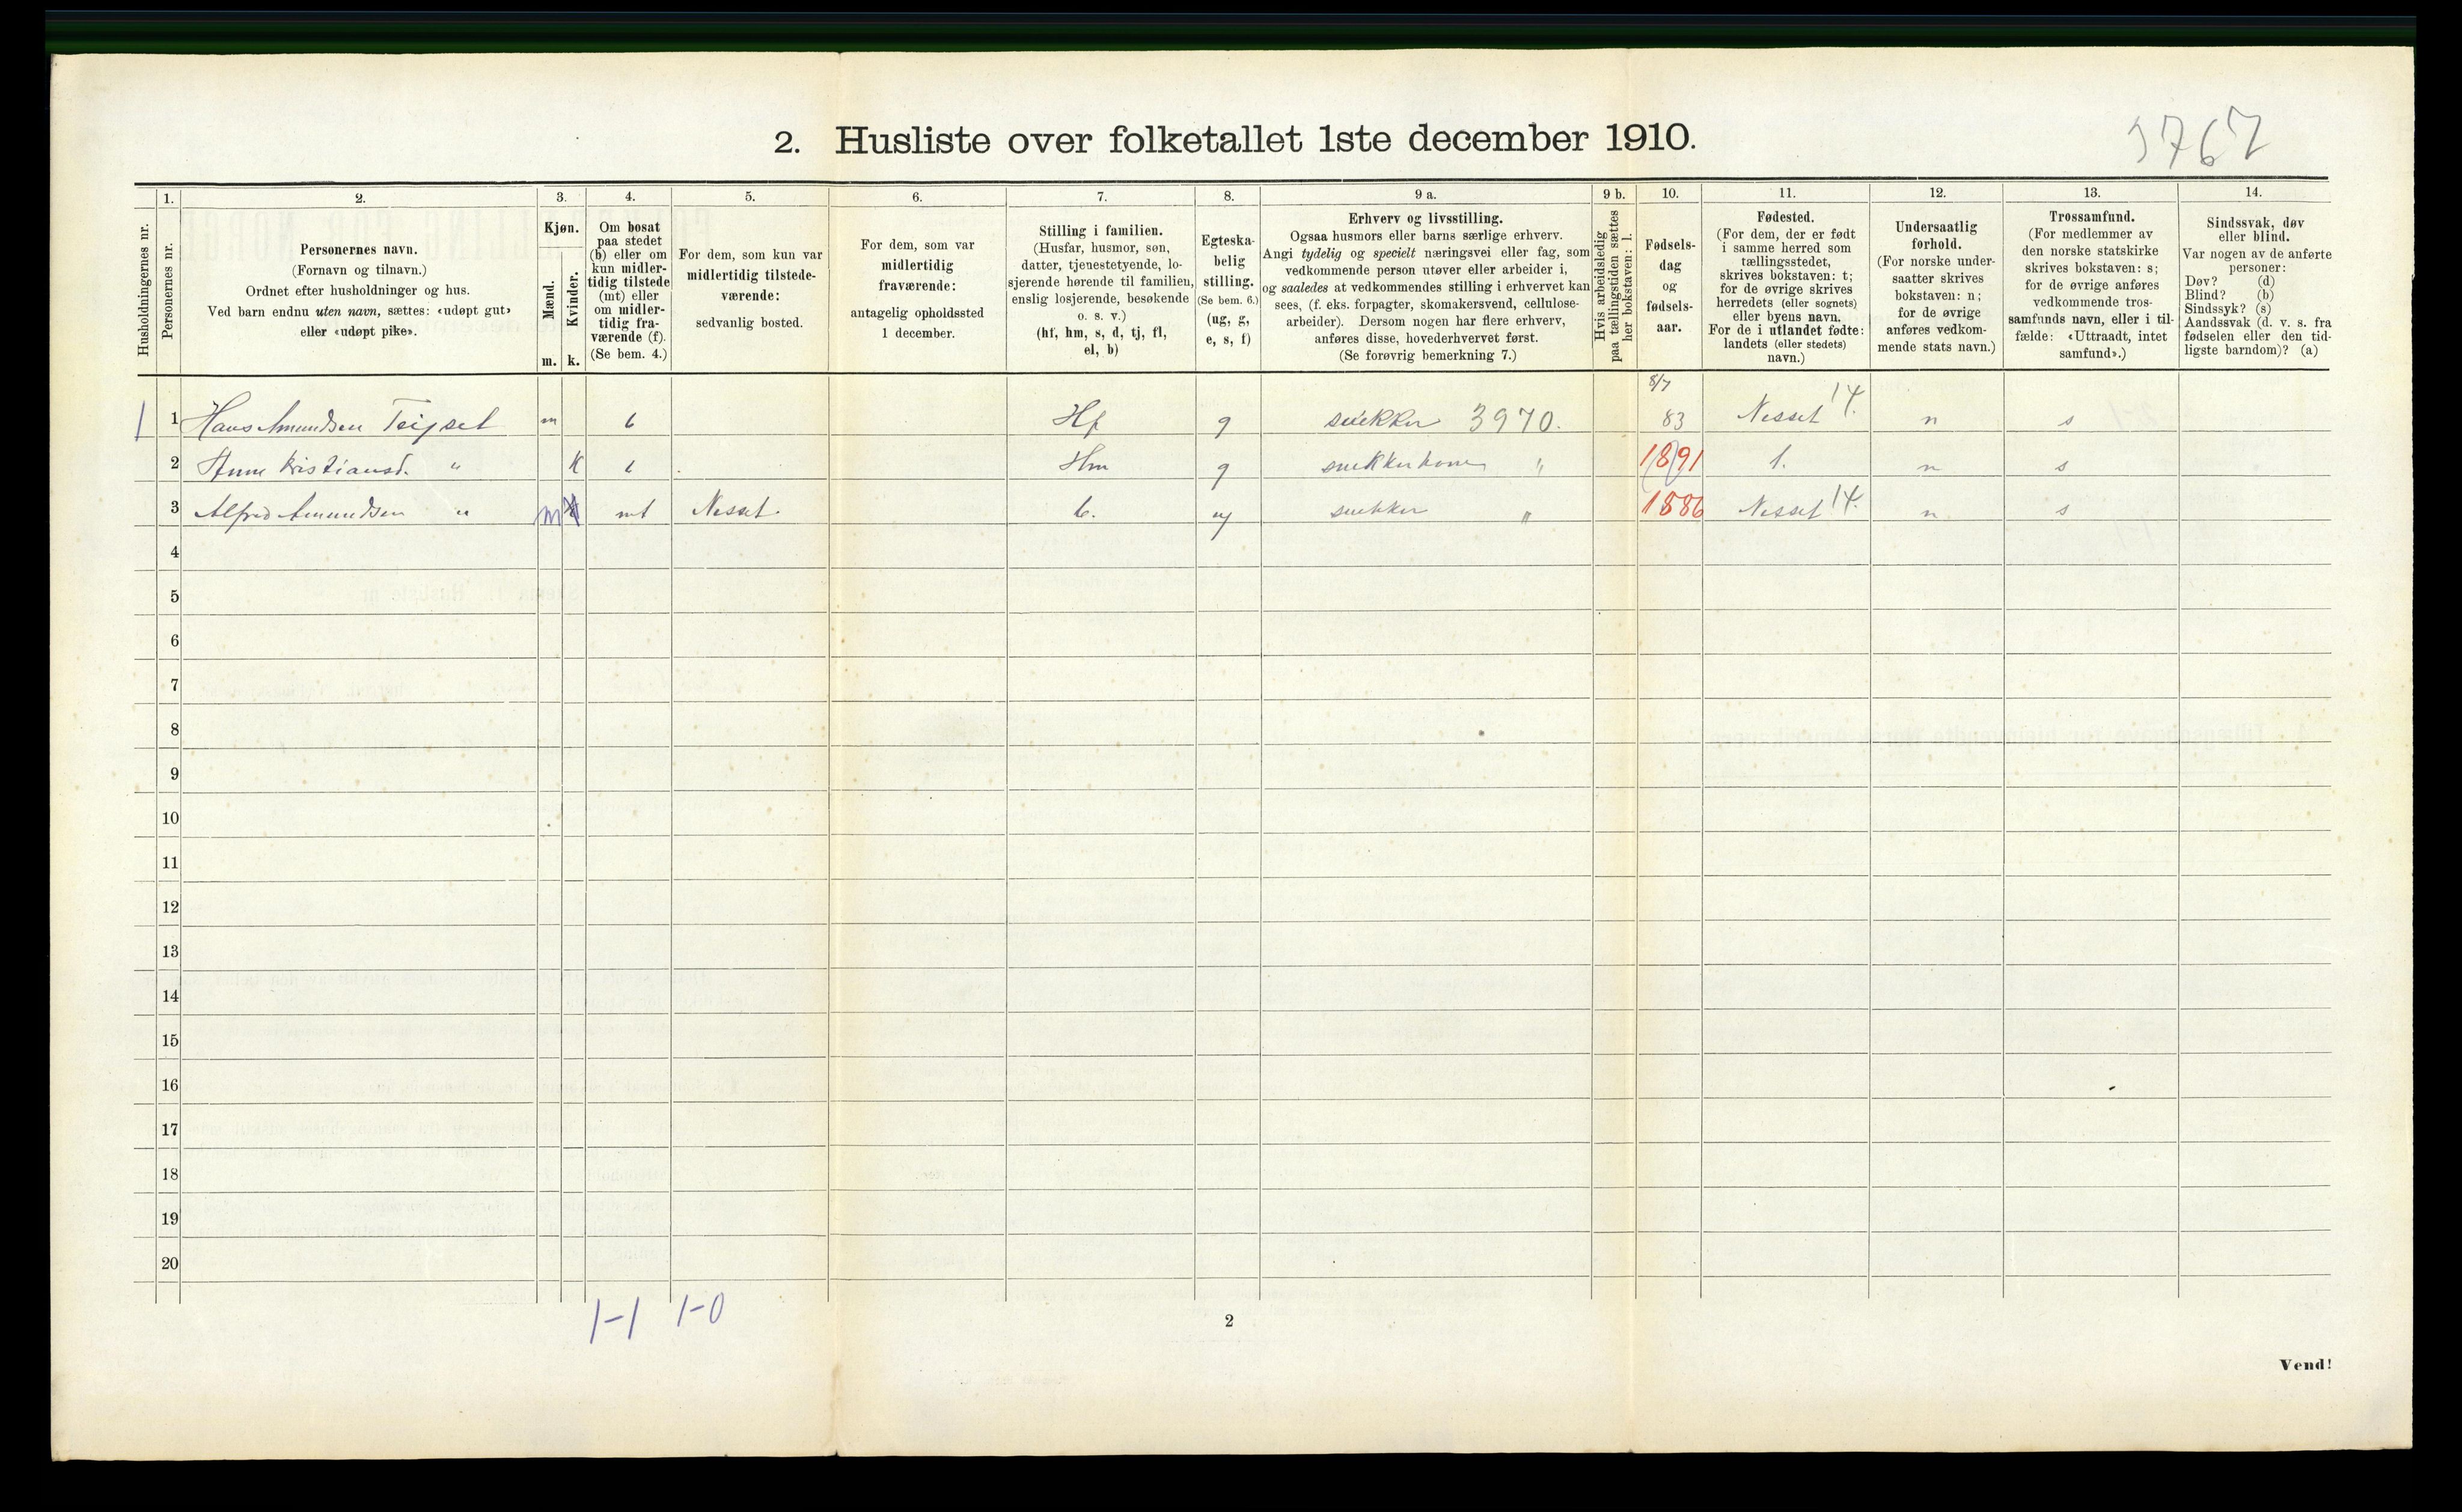 2. Husliste over folketallet 1ste december 1910.
3767
Husholdningernes nr.
1.
Personernes nr.
2.
Personernes navn.
(Fornavn og tilnavn.)
Ordnet efter husholdninger og hus.
Ved barn endnu uten navn, sættes: «udøpt gut»
eller «udøpt pike».
3.
Kjøn.
Mænd.
Kvinder.
m. k.
4.
Om bosat
paa stedet
(b) eller om
kun midler-
tidig tilstede
(mt) eller
om midler-
tidig fra-
værende (f).
(Se bem. 4.)
5.
For dem, som kun var
midlertidig tilstede-
værende:
sedvanlig bosted.
6.
For dem, som var
midlertidig
fraværende:
antagelig opholdssted
1 december.
7.
Stilling i familien.
(Husfar, husmor, søn,
datter, tjenestetyende, lo-
sjerende hørende til familien,
enslig losjerende, besøkende
o. s. v.)
(hf, hm, s, d, tj, fl,
el, b)
8.
Egteska-
belig
stilling.
(Se bem. 6.)
(ug, g,
e, s, f)
9 a.
Erhverv og livsstilling.
Ogsaa husmors eller barns særlige erhverv.
Angi tydelig og specielt næringsvei eller fag, som
vedkommende person utøver eller arbeider i,
og saaledes at vedkommendes stilling i erhvervet kan
sees, (f. eks. forpagter, skomakersvend, cellulose-
arbeider). Dersom nogen har flere erhverv,
anføres disse, hovederhvervet først.
(Se forøvrig bemerkning 7.)
9 b.
Hvis arbeidsledig
paa tællingstiden sættes
her bokstaven: l.
10.
Fødsels-
dag
og
fødsels-
aar.
11.
Fødested.
(For dem, der er født
i samme herred som
tællingsstedet,
skrives bokstaven: t;
for de øvrige skrives
herredets (eller sognets)
eller byens navn.
For de i utlandet fødte:
landets (eller stedets)
navn.)
12.
Undersaatlig
forhold.
(For norske under-
saatter skrives
bokstaven: n;
for de øvrige
anføres vedkom-
mende stats navn.)
13.
Trossamfund.
(For medlemmer av
den norske statskirke
skrives bokstaven: s;
for de øvrige anføres
vedkommende tros-
samfunds navn, eller i til-
fælde: «Uttraadt, intet
samfund».)
14.
Sindssvak, døv
eller blind.
Var nogen av de anførte
personer:
Døv? (d)
Blind? (b)
Sindssyk? (s)
Aandssvak (d. v. s. fra
fødselen eller den tid-
ligste barndom)? (a)
1 1 Hans Amundsen Teigset m b Hf g snekker 3970. 8/7 83 Nesset 14. n s
2 Anne Kristiansd. " k b Hm g snekkerkone " 1891 t. n s
3 Alfred Amundsen " m mt Nesset. b. ug snekker " 1886 Nesset 14. n s
4
5
6
7
8
9
10
11
12
13
14
15
16
17
18
19
20
1-1 1-0
2
Vend!